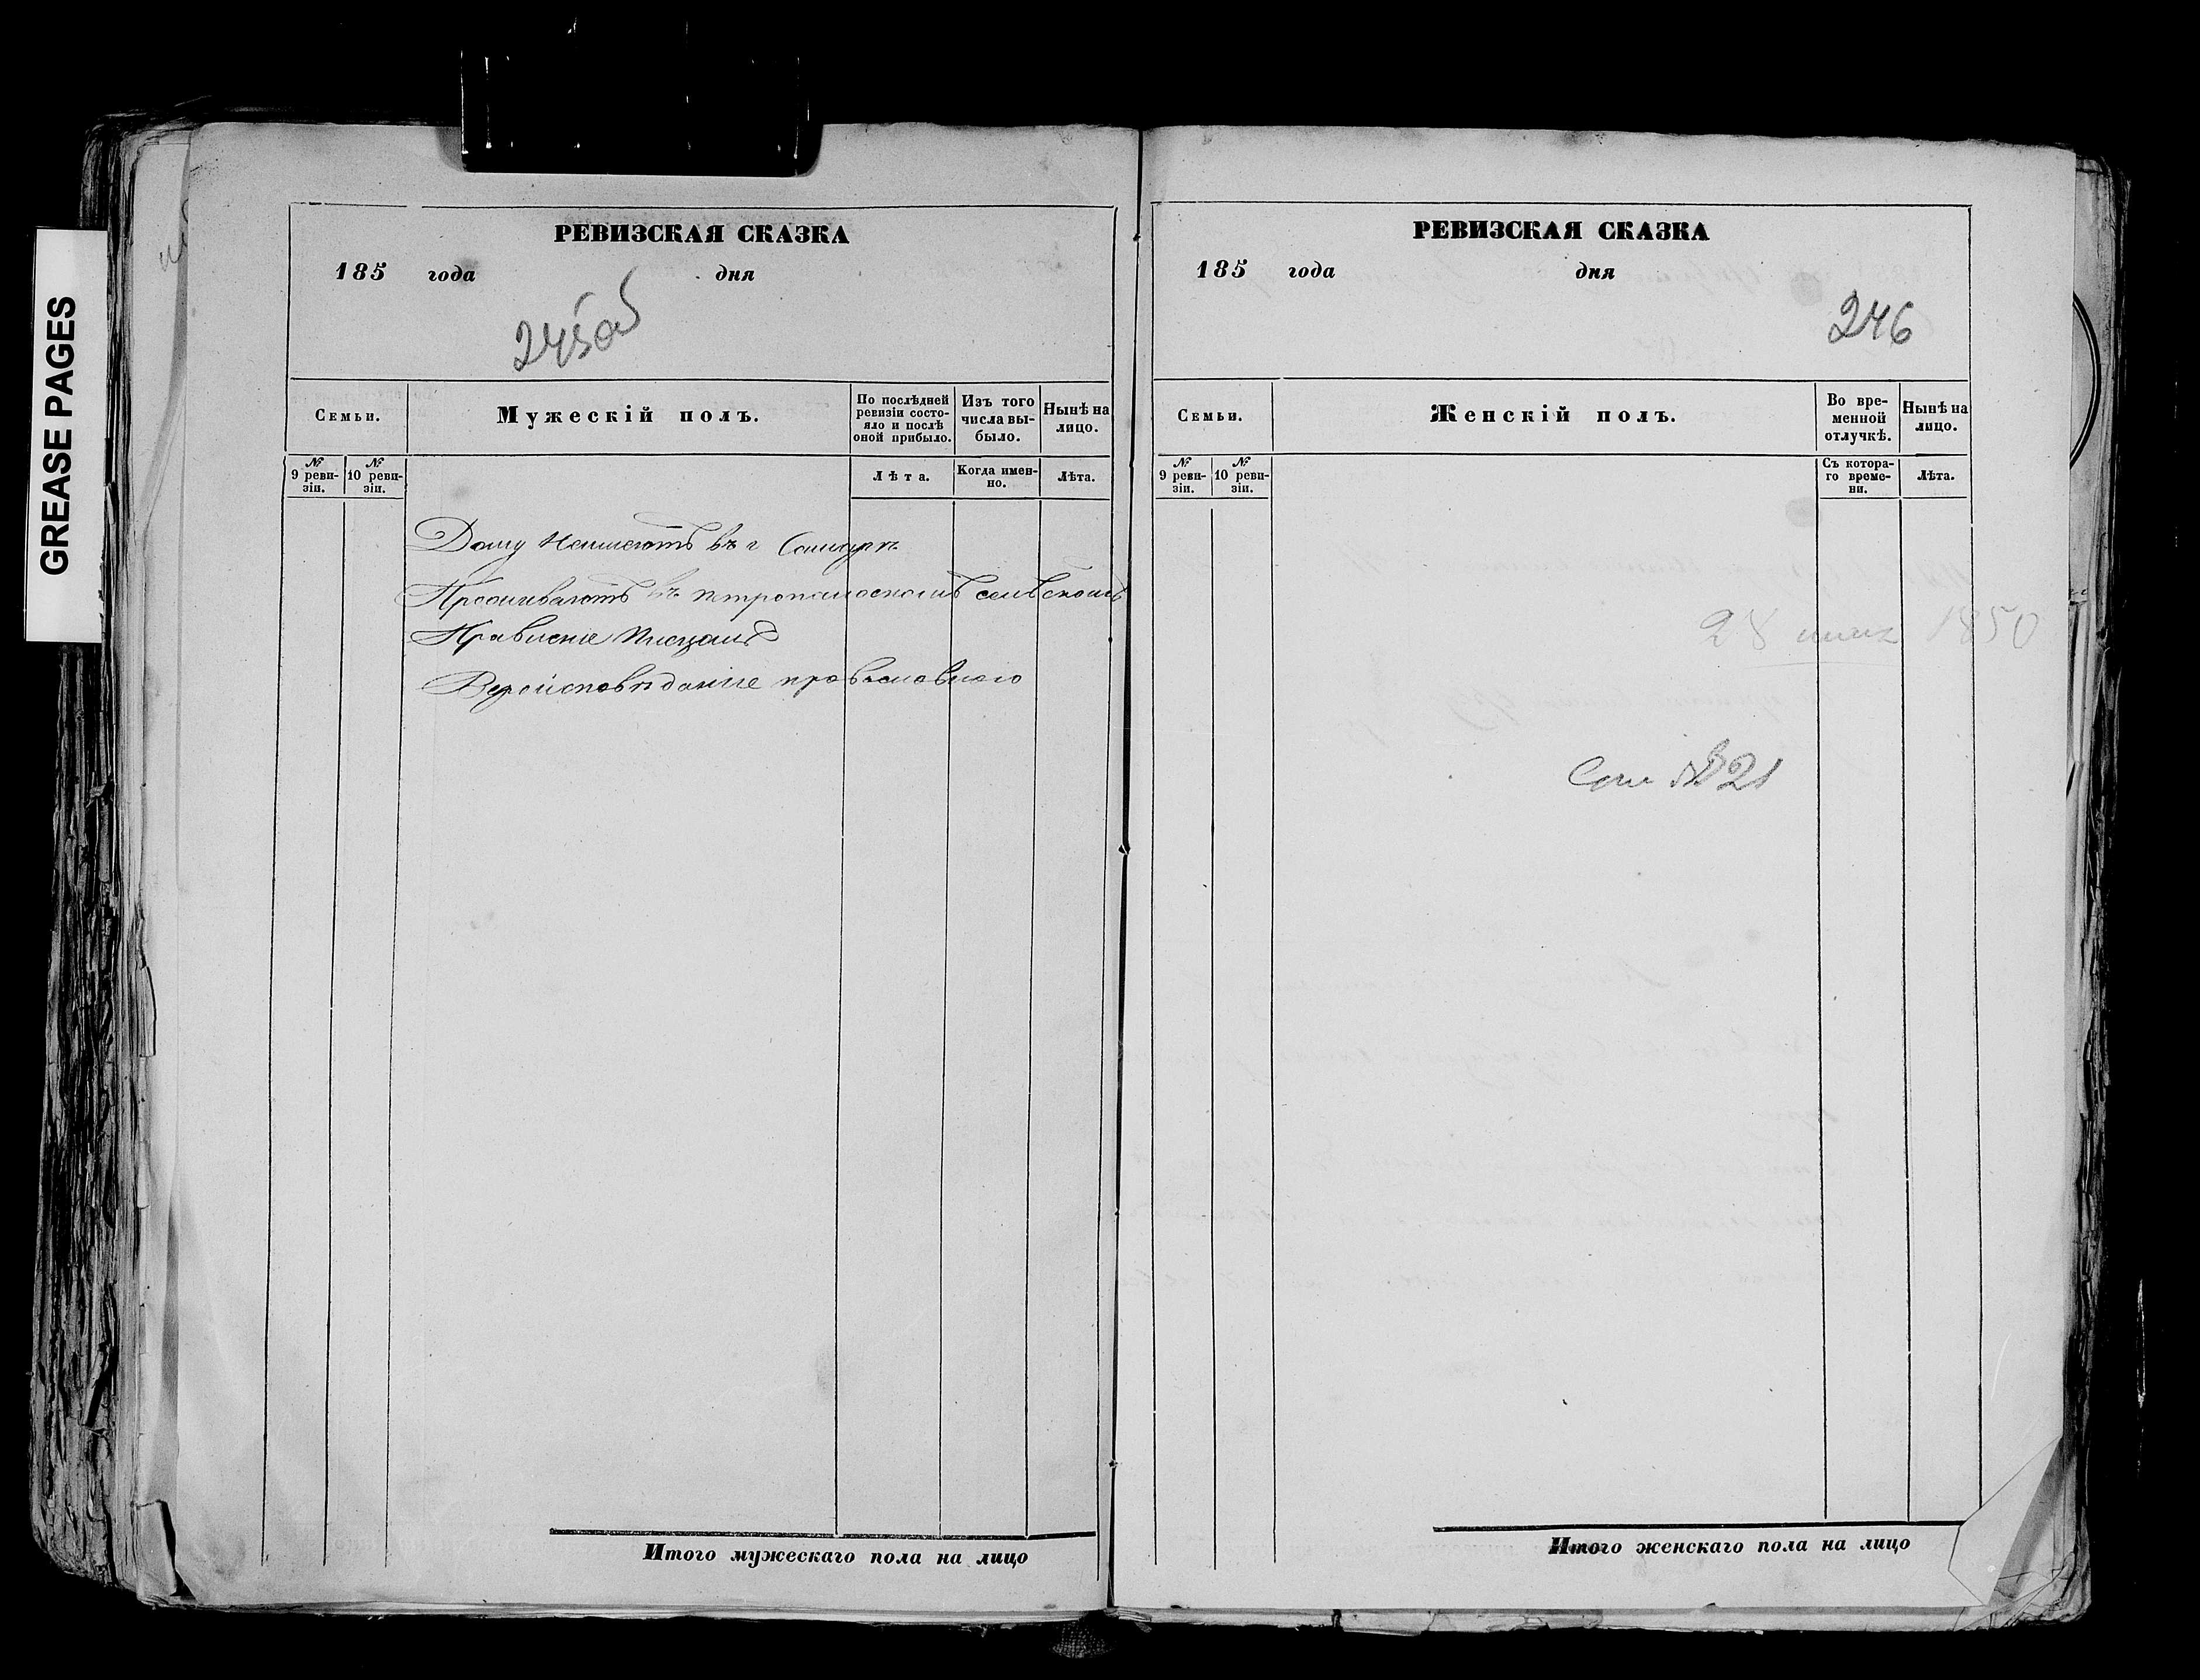 GREASE PAGES
РЕВИЗСКАЯ СКАЗКА
185 года дня
245об
Семьи.
Мужескій полъ.
По послѣдней ревизіи состояло и послѣ оной прибыло.
Изъ того числа выбыло.
Нынѣ на лицо.
№ 9 ревизіи.
№ 10 ревизіи.
Лѣта.
Когда именно.
Лѣта.
Дому неимеютъ въ г Самарѣ
Проживаютъ въ петропавловскомъ сельскомъ
Правленіе Писцомъ
Вероисповѣданіе православного
Итого мужескаго пола на лицо
РЕВИЗСКАЯ СКАЗКА
185 года дня
246
Семьи.
Женскій полъ.
Во временной отлучкѣ.
Нынѣ на лицо.
№ 9 ревизіи.
№ 10 ревизіи.
Съ котораго времени.
Лѣта.
28 1850
№ 21
Итого женскаго пола на лицо